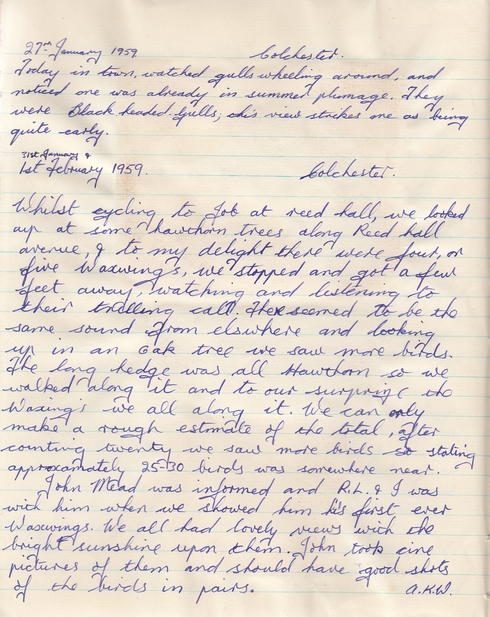 27th January 1959 Colchester.
Today in town, watched gulls wheeling around, and
noticed one was already in summer plumage. They
were Black headed Gulls; this view strikes me as being
quite early.
31st January &
1st February 1959. Colchester.
Whilst cycling to Job at reed hall, we looked
up at some hawthorn trees along Reed hall
avenue, & to my delight there were four, or
five Waxwings, we stopped and got a few
feet away, watching and listening to
their trilling call. There seemed to be the
same sound from elsewhere and looking
up in an Oak tree we saw more birds.
The long hedge was all Hawthorn so we
walked along it and to our surprise the
Waxing's we all along it. We can only
make a rough estimate of the total, after
counting twenty we saw more birds so stating
approxamately 25-30 birds was somewhere near.
John Mead was informed and R.L. & I was
with him when we showed him his first ever
Waxwings. We all had lovely views with the
bright sunshine upon them. John took cine
pictures of them and should have good shots
of the birds in pairs. A.K.W.